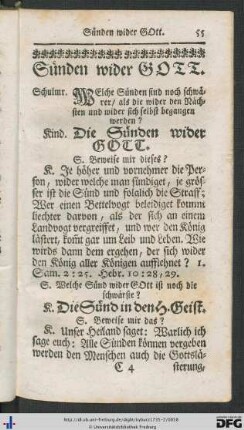 Sünden wider GOtt. 55
Sünden wider GOTT.
Schulmr. Welche Sünden sind noch schwä-
rer / als die wider den Näch-
sten und wider sich selbst begangen
werden?
Kind. Die Sünden wider
GOTT.
S. Beweise mir dieses?
K. Je höher und vornehmer die Per-
son, wider welche man sündiget, je grös-
ser ist die Sünd und folglich die Straff;
Wer einen Bettelvogt beleidiget kommt
liechter darvon, als der sich an einem
Landvogt vergreiffet, und wer den König
lästert, komt gar um Leib und Leben. Wie
wirds dann dem ergehen, der sich wider
den König aller Königen auflehnet? 1.
Sam. 2:25. Hebr. 10:28, 29.
S. Welche Sünd wider GOtt ist noch die
schwärste?
K. Die Sünd in den H. Geist.
S. Beweise mir das?
K. Unser Heiland saget: Warlich ich
sage euch: Alle Sünden können vergeben
werden den Menschen auch die Gottslä-
C 4 sterung,
© Universitätsbibliothek Freiburg